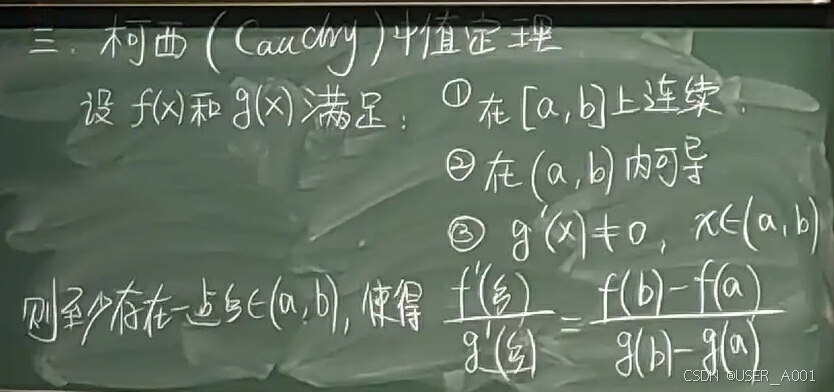 三. 柯西 (Cauchy) 中值定理
设 f(x) 和 g(x) 满足: ① 在 [a, b] 上连续.
② 在 (a, b) 内可导
③ g'(x) ≠ 0, x∈(a, b)
则至少存在一点ξ∈(a, b), 使得 f'(ξ)/g'(ξ) = f(b)-f(a)/g(b)-g(a)
CSDN @USER_A001